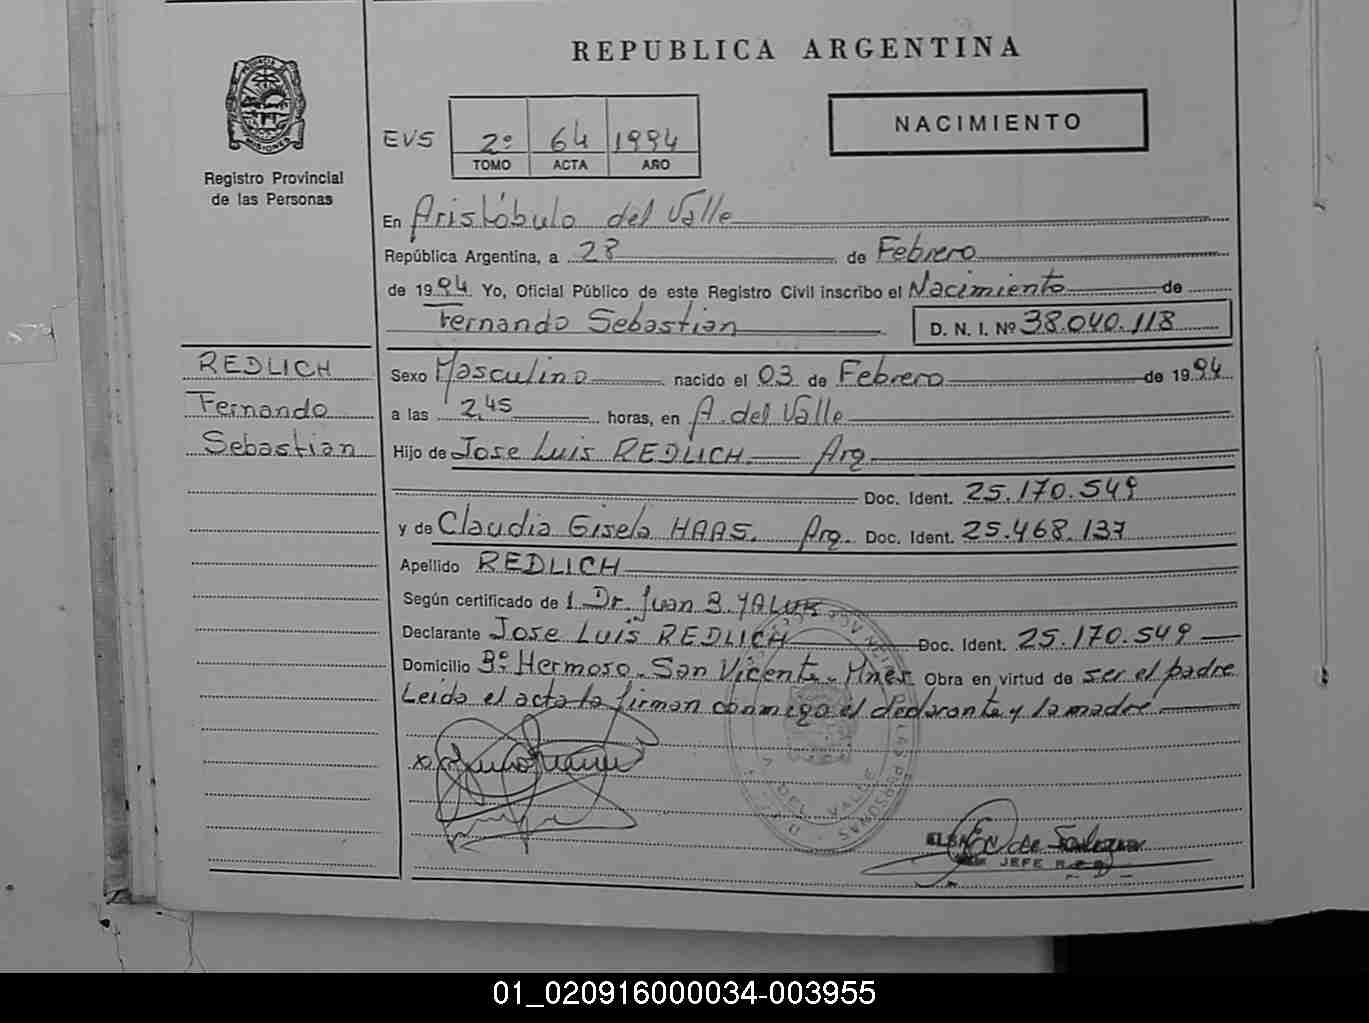 REPUBLICA ARGENTINA
NACIMIENTO
EVS 2º 64 1994
TOMO ACTA AÑO
MISIONES
Registro Provincial
de las Personas
En Aristóbulo del Valle
República Argentina, a 28 de Febrero
de 1994 Yo, Oficial Público de este Registro Civil inscribo el Nacimiento de
Fernando Sebastian D. N. I. Nº 38.040.118
REDLICH
Fernando
Sebastian
Sexo Masculino nacido el 03 de Febrero de 1994
a las 2,45 horas, en A. del Valle
Hijo de Jose Luis REDLICH. Arg
Doc. Ident. 25.170.549
y de Claudia Gisela HAAS. Arg. Doc. Ident. 25.468.137
Apellido REDLICH
Según certificado de 1 Dr. Juan B. YALUK
Declarante Jose Luis REDLICH Doc. Ident. 25.170.549
Domicilio Bº Hermoso. San Vicente - Mnes Obra en virtud de ser el padre
Leida el acta la firman conmigo el declarante y la madre
DEL VALLE
LAS PERSONAS
JEFE
01_020916000034-003955